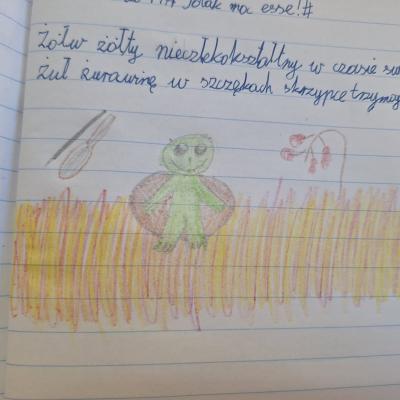 jolak ma esse!#
Żółw żółty nieczłekokształtny w czasie
żuł żurawinę w szczękach skrzypce